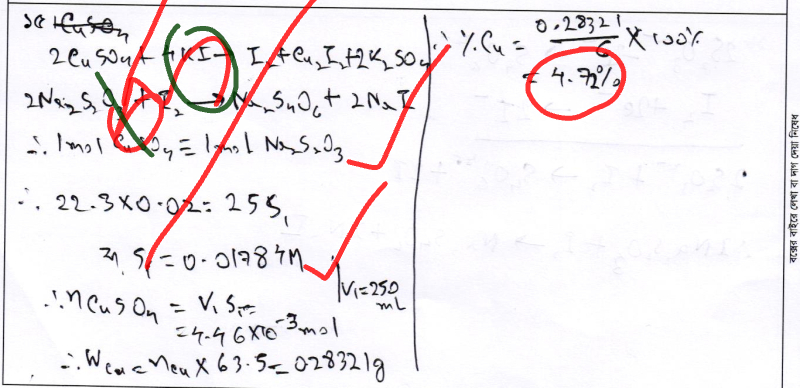 2CuSO4 + 4KI → I2 + Cu2I2 + 2K2SO4
2Na2S2O3 + I2 → Na2S4O6 + 2NaI
∴ 1mol CuSO4 ≡ 1mol Na2S2O3
∴ 22.3 × 0.02 = 25 S1
বা, S1 = 0.01784M
V1 = 250 mL
∴ nCuSO4 = V1 S1 =
= 4.46 × 10^-3 mol
∴ WCu = nCu × 63.5 = 0.28321g
∴ % Cu = 0.28321/6 × 100%
= 4.72%
বক্সের বাইরে লেখা বা দাগ দেয়া নিষেধ